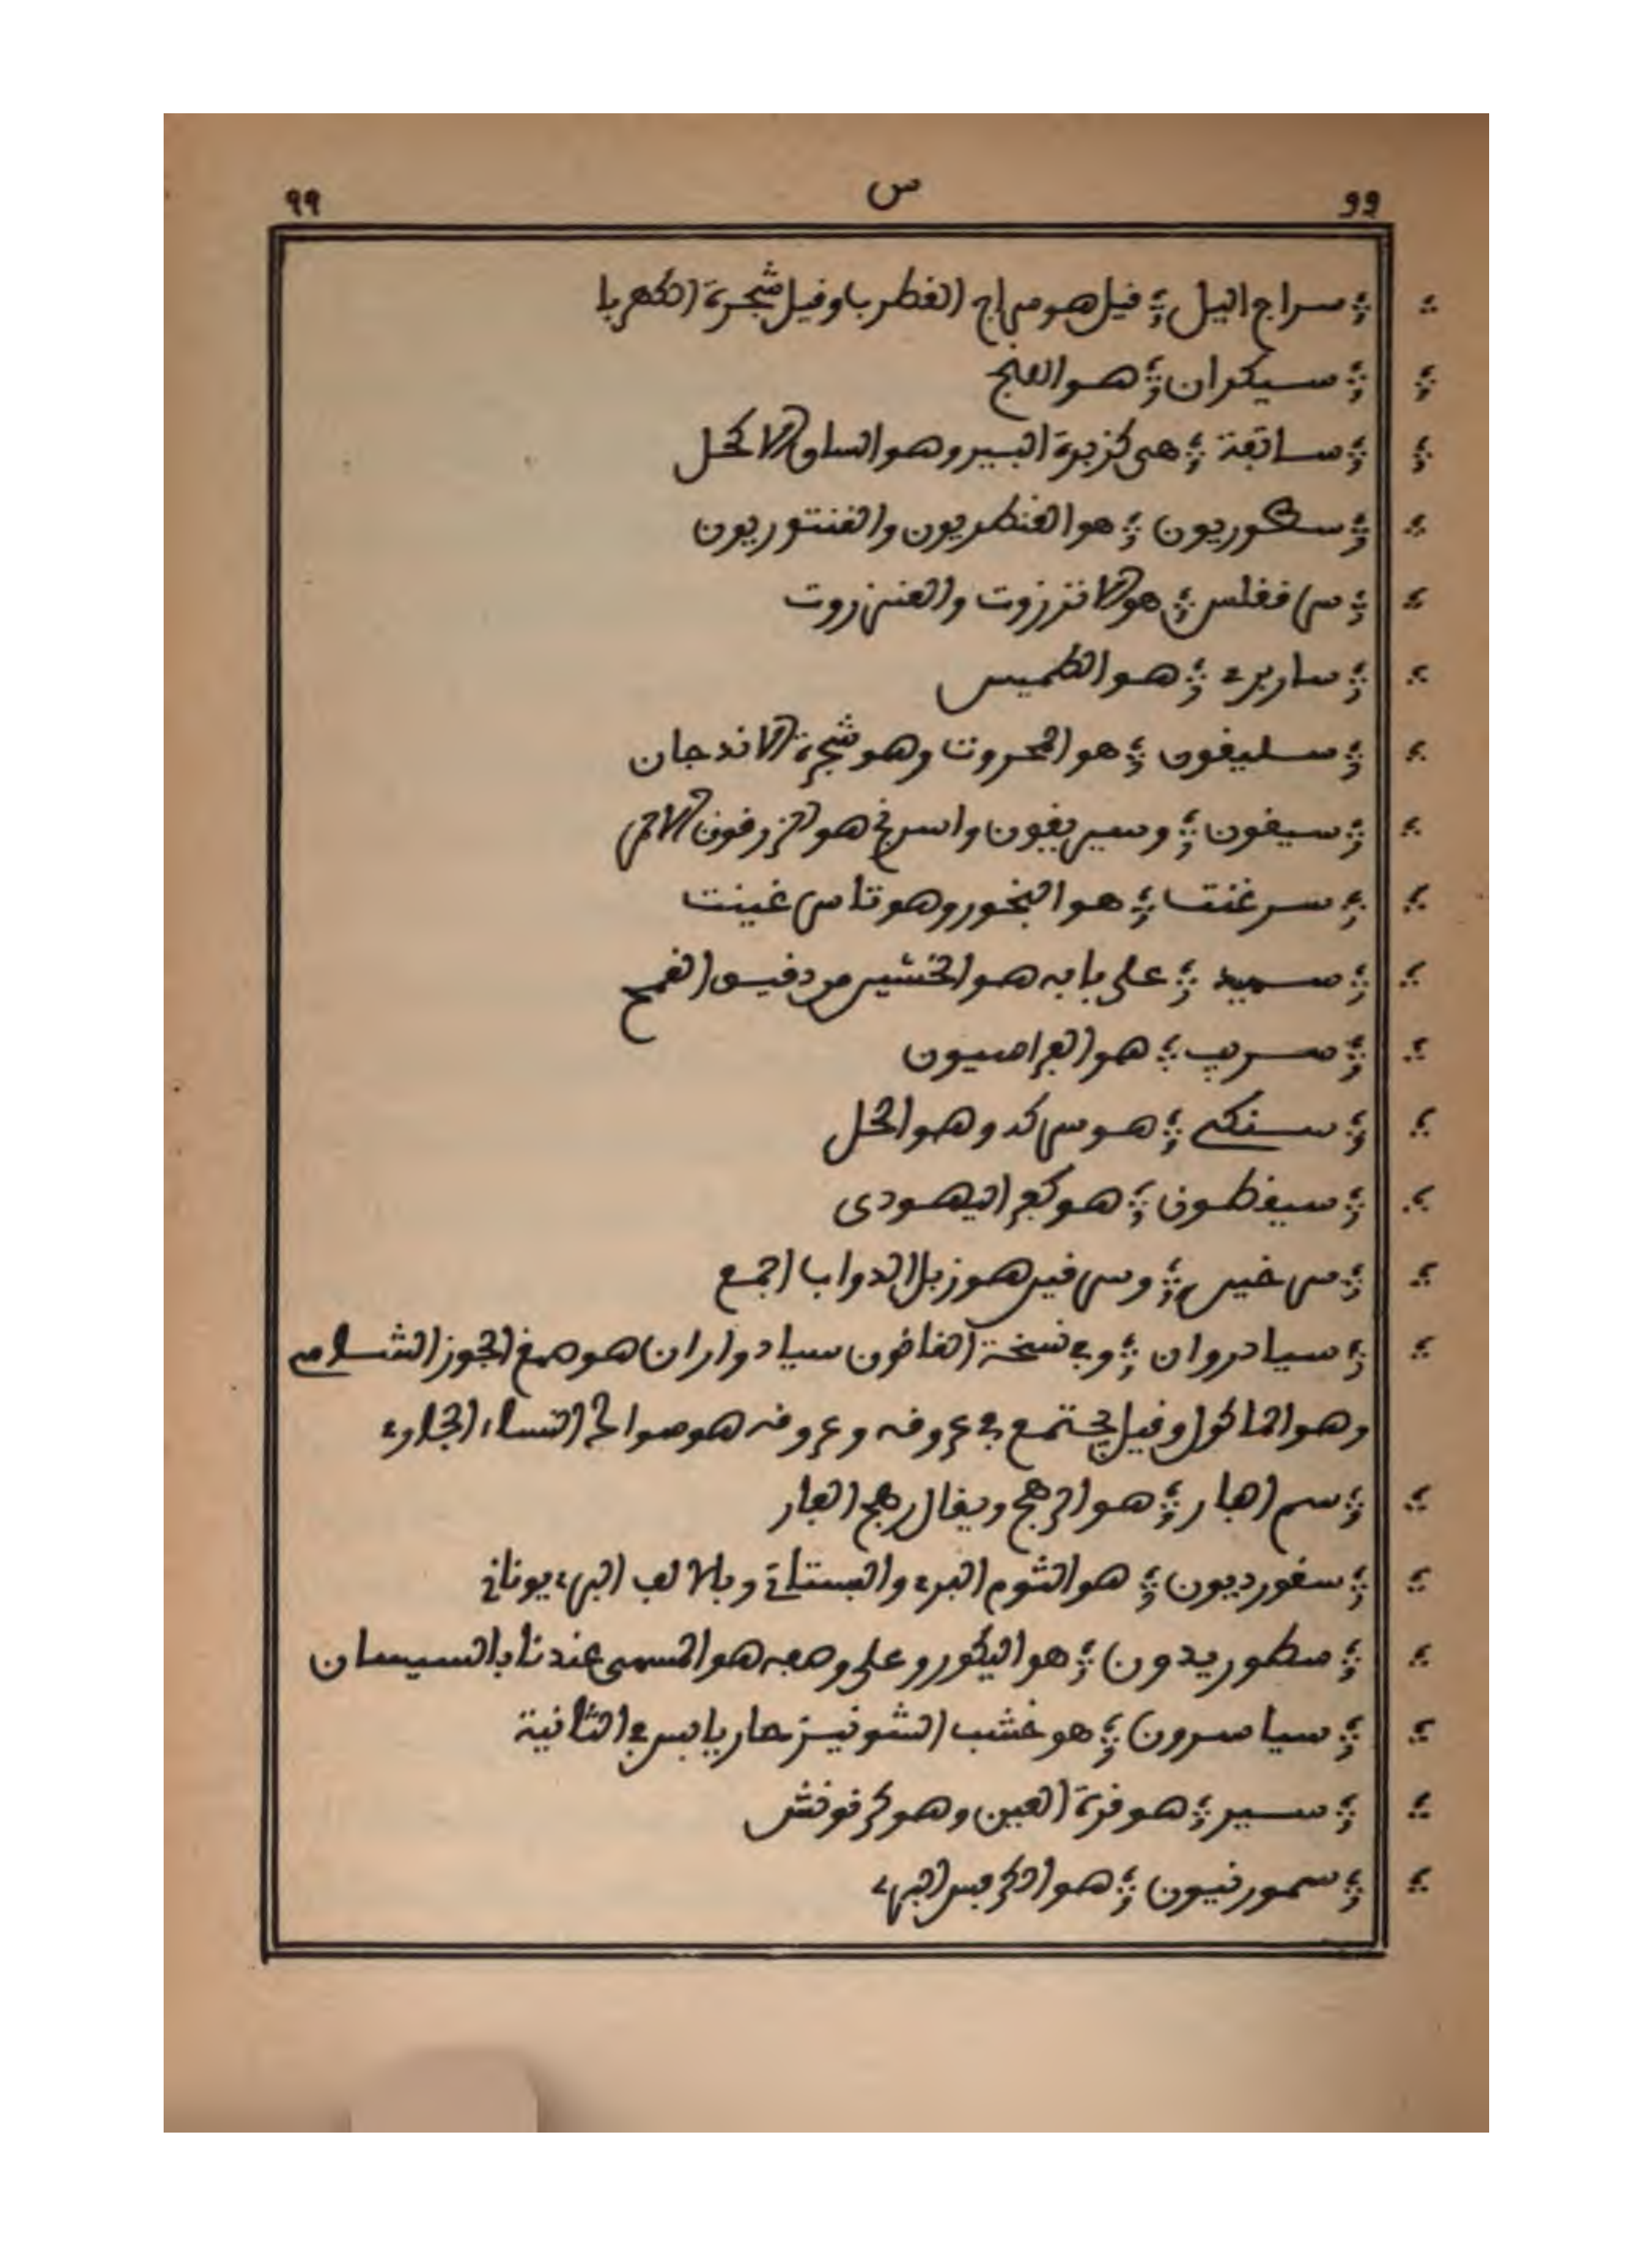 ٩٩ س ٩٩
سراج اليل ؛ قيل هو سراج القطرب وقيل شجرة الكهربا
سيكران ؛ هو البنج
سابقة ؛ هي كزبرة البير وهو الساق الاكحل
سكوريون ؛ هو القنطريون والقنتوريون
هو الانزروت والعنزروت
ساربرى ؛ هو الكميس
سليقون ؛ هو المحروت وهو شجرة الاندجان
سيقون ؛ وسيريقون واسرنج هو الزرقون الاحمر
سرغنت ؛ هو البخور وهو تاسرغينت
سميد ؛ على بابه هو الخشين من دقيق القمح
هو الفراسيون
سنكى ؛ هو سركه وهو الخل
سيفطون ؛ هو كف اليهودي
سرقين ؛ وسرقين هو زبل الدواب اجمع
سيادروان ؛ وفي نسخة القانون سيادواران هو صمغ الجوز الشامي
وهو الماكول وقيل يجتمع في عروقه وعروقه هو صوالح النساء الجاوي
سم الفار ؛ هو الرهج ويقال رهج الفار
سقورديون ؛ هو الثوم البري والبستاني وبلا لف البري يوناني
سطوريدون ؛ هو اليكورو على وصفه هو المسمى عندنا بالسيسان
سياسرون ؛ هو خشب الشونيز حار يابس في الثانية
سير ؛ هو قرة العين وهو كرفونش
سمورنيون ؛ هو الكرفس البري